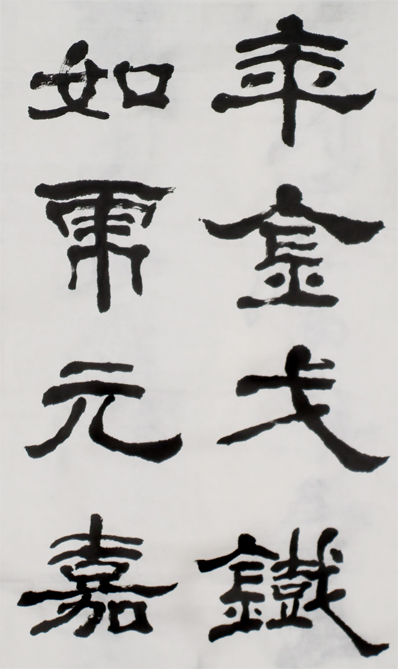 年金戈鐵
如虎元嘉